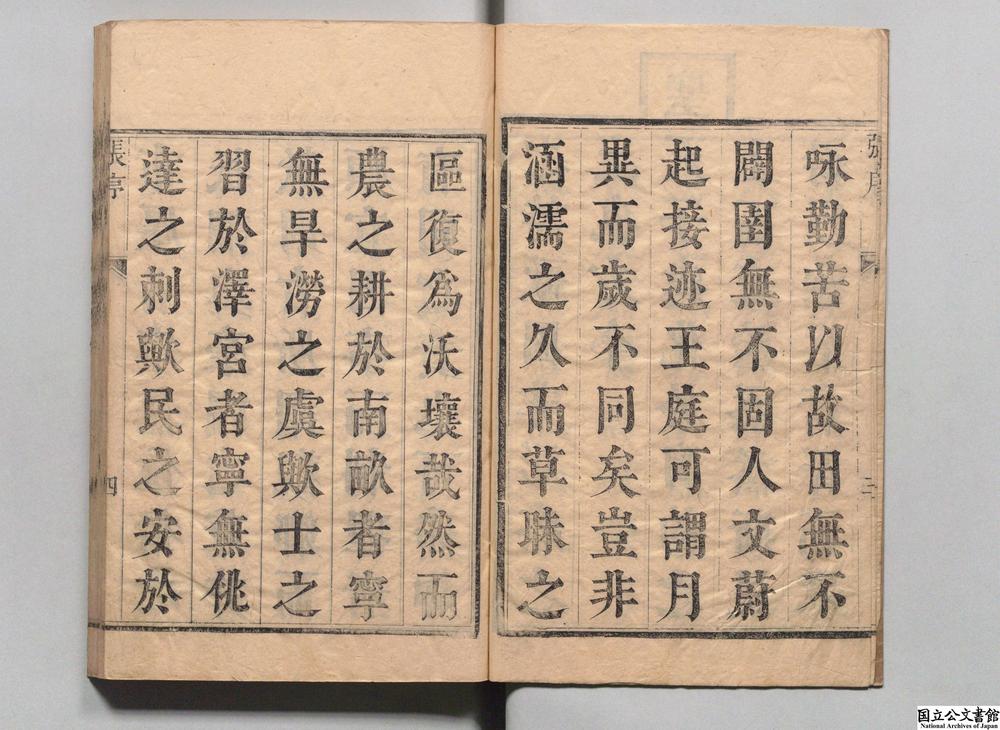 咏勤苦以故田無不
闢圉無不固人文蔚
起接迹王庭可謂月
異而歲不同矣豈非
涵濡之久而草昧之
區復爲沃壤哉然而
農之耕於南畝者寧
無旱澇之虞歟士之
習於澤宮者寧無佻
達之刺歟民之安於
張序
三
張序
四
国立公文書館
National Archives of Japan